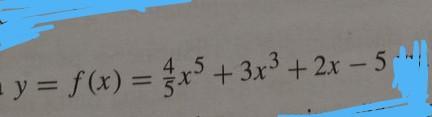 y = f(x) = \frac{4}{5}x^5 + 3x^3 + 2x - 5